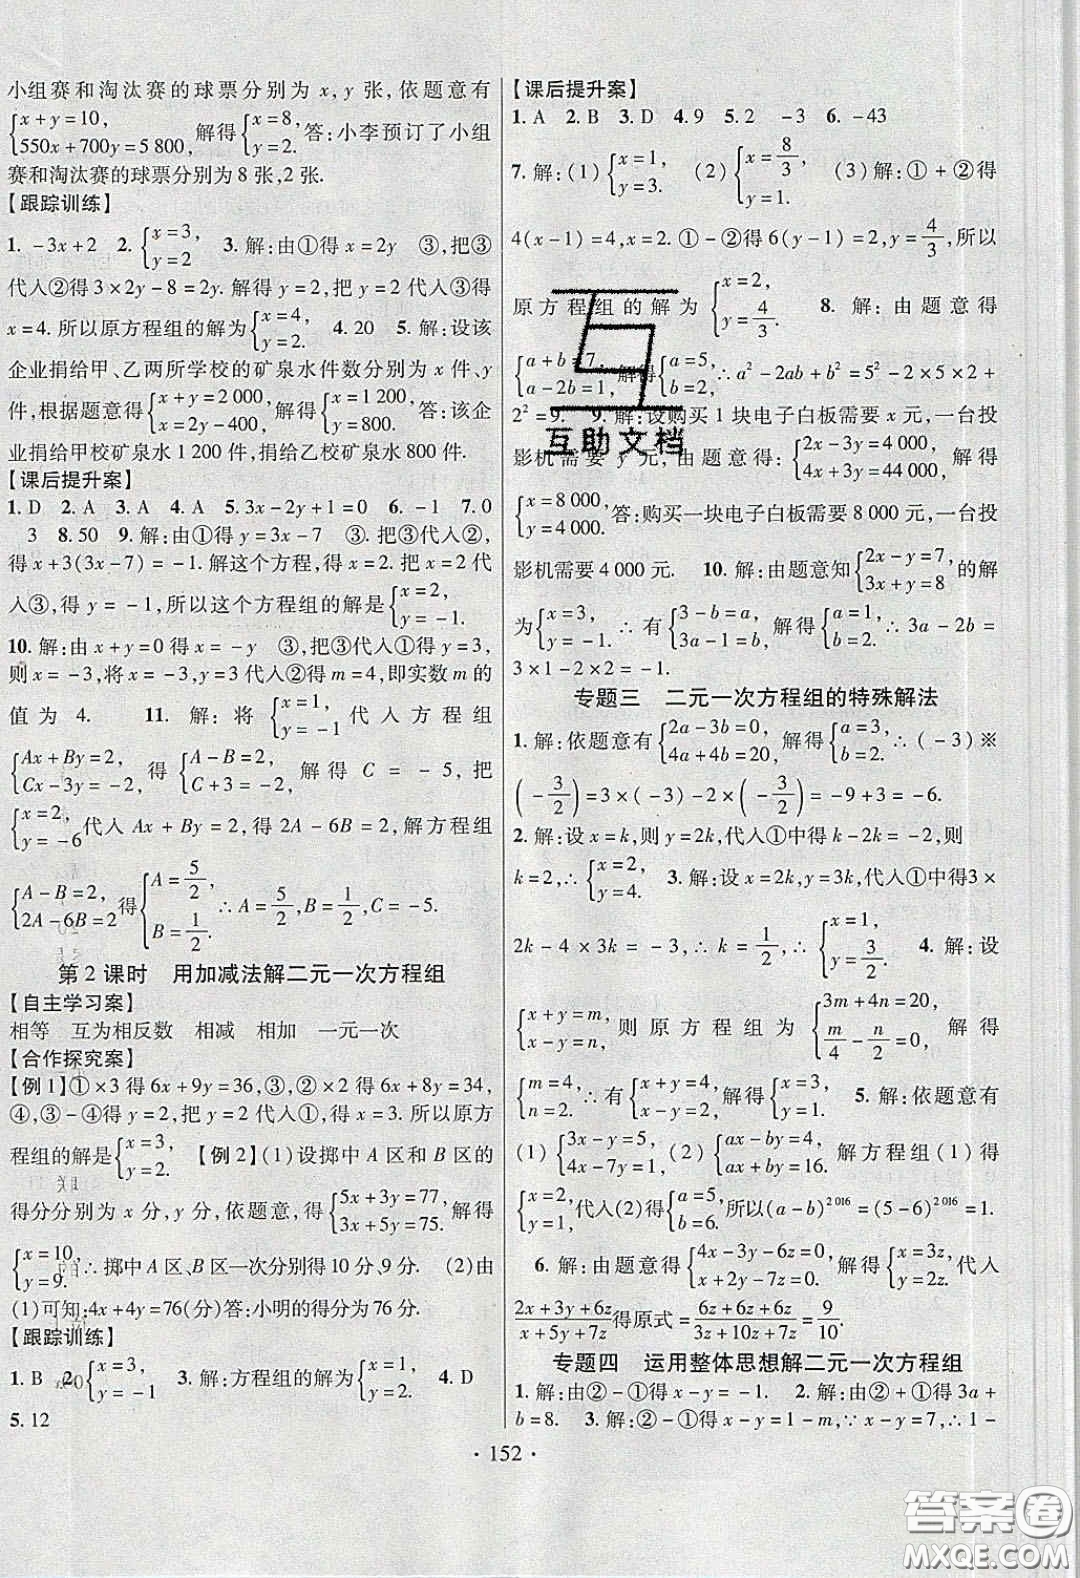 小组赛和淘汰赛的球票分别为 x,y 张,依题意有
{x+y=10, 550x+700y=5 800, 解得{x=8, y=2. 答:小李预订了小组
赛和淘汰赛的球票分别为 8 张,2 张.
【跟踪训练】
1. -3x+2 2. {x=3, y=2 3. 解:由①得 x=2y ③,把③
代入②得 3×2y-8=2y. 解得 y=2,把 y=2 代入③得
x=4. 所以原方程组的解为{x=4, y=2. 4. 20 5. 解:设该
企业捐给甲、乙两所学校的矿泉水件数分别为 x 件、y
件,根据题意得{x+y=2 000, x=2y-400, 解得{x=1 200, y=800. 答:该企
业捐给甲校矿泉水 1 200 件,捐给乙校矿泉水 800 件.
【课后提升案】
1. D 2. A 3. A 4. A 5. 3x-2y+1=0 6. -1 7. 0
3 8. 50 9. 解:由①得 y=3x-7 ③. 把③代入②,
得 x+3(3x-7)=-1. 解这个方程,得 x=2. 把 x=2 代
入③,得 y=-1,所以这个方程组的解是{x=2, y=-1.
10. 解:由 x+y=0 得 x=-y ③,把③代入①得 y=3,
则 x=-3,将 x=-3,y=3 代入②得 m=4,即实数 m 的
值为 4. 11. 解:将{x=1, y=-1 代入方程组
{Ax+By=2, Cx-3y=-2, 得{A-B=2, C+3=-2, 解得 C=-5,把
{x=2, y=-6 代入 Ax+By=2,得 2A-6B=2,解方程组
{A-B=2, 2A-6B=2 得{A=5/2, B=1/2. ∴A=5/2,B=1/2,C=-5.
第 2 课时 用加减法解二元一次方程组
【自主学习案】
相等 互为相反数 相减 相加 一元一次
【合作探究案】
【例 1】①×3 得 6x+9y=36,③,②×2 得 6x+8y=34,
④,③-④得 y=2,把 y=2 代入①,得 x=3. 所以原方
程组的解是{x=3, y=2. 【例 2】(1)设掷中 A 区和 B 区的
得分分别为 x 分,y 分,依题意,得{5x+3y=77, 3x+5y=75. 解得
{x=10, y=9. ∴掷中 A 区、B 区一次分别得 10 分、9 分. (2)由
(1)可知:4x+4y=76(分)答:小明的得分为 76 分.
【跟踪训练】
1. B 2. {x=3, y=-1 3. {x=1, y=-1 4. D
5. 12
【课后提升案】
1. A 2. B 3. D 4. 9 5. 2 -3 6. -43
7. 解:(1){x=1, y=3. (2){x=8/3, y=1. (3)解:①+②得
4(x-1)=4,x=2. ①-②得 6(y-1)=2,y=4/3,所以
原方程组的解为{x=2, y=4/3. 8. 解:由题意得
{a+b=7, a-2b=1, 解得{a=5, b=2, ∴a²-2ab+b²=5²-2×5×2+
2²=9. 9. 解:设购买 1 块电子白板需要 x 元,一台投
影机需要 y 元,由题意得:{2x-3y=4 000, 4x+3y=44 000,
{x=8 000, y=4 000. 答:购买一块电子白板需要 8 000 元,一台投
影机需要 4 000 元. 10. 解:由题意知{2x-y=7, 3x+y=8 的解
为{x=3, y=-1. ∴有{3-b=a, 3a-1=b, 解得{a=1, b=2. ∴3a-2b=
3×1-2×2=-1.
专题三 二元一次方程组的特殊解法
1. 解:依题意有{2a-3b=0, 4a+4b=20, 解得{a=3, b=2. ∴(-3)※
(-3/2)=3×(-3)-2×(-3/2)=-9+3=-6.
2. 解:设 x=k,则 y=2k,代入①中得 k-2k=-2,则
k=2,∴{x=2, y=4. 3. 解:设 x=2k,y=3k,代入①中得3×
2k-4×3k=-3,∴k=1/2,∴{x=1, y=3/2. 4. 解:设
{x+y=m, x-y=n, 则原方程组为{3m+4n=20, m/4-n/2=0, 解得
{m=4, n=2. ∴有{x+y=4, x-y=2, 解得{x=3, y=1. 5. 解:依题意有
(1){3x-y=5, 4x-7y=1, (2){ax-by=4, ax+by=16, 解方程组(1)得
{x=2, y=1, 代入(2)得{a=5, b=6. 所以(a-b)²⁰¹⁶=(5-6)²⁰¹⁶=1.
6. 解:由题意得{4x-3y-6z=0, x+2y-7z=0, 解得{x=3z, y=2z. 代入
(2x+3y+6z)/(x+5y+7z)得原式=(6z+6z+6z)/(3z+10z+7z)=9/10.
专题四 运用整体思想解二元一次方程组
1. 解:由②-①得 x-y=-1. 2. 解:由②+①得 3a+
b=8. 3. 解:②-①得 x-y=1-m,∵x-y=7,∴1-
· 152 ·
互助文档
答案圈
MXQE.COM